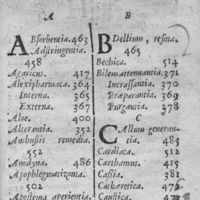 A
ABsorbentia. 463
Adstringentia.
458
Agaricus. 417
Alexipharmaca. 364
Interna. 365
Externa. 367
Aloe. 400
Alterantia. 352
Ambustis remedia.
552
Anodyna. 486
Apophlegmatizonta.
502
Apostema aperientia.
B
BDellium, resina.
465
Bechica. 514
Bilem attenuantia. 371
Incrassantia. 370
Præparantia. 369
Purgantia. 378
C
CAllum generantia. 485
Cardiaca. 512
Carthamus. 415
Cassia. 381
Cathæretica. 472
Caustica.